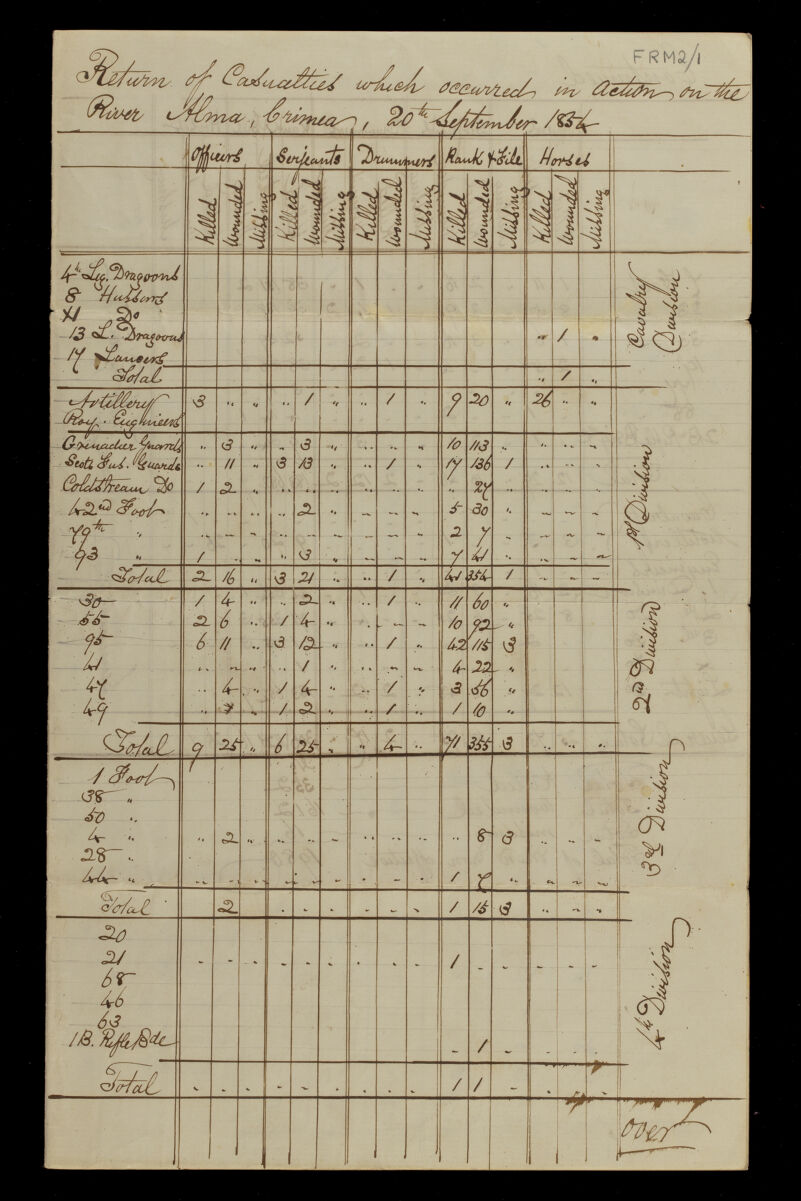 FRM2/1
Return of Casualties which occurred in action on the
River Alma, Crimea, 20th September 1854
Officers Serjeants Drummers Rank & File Horses
Killed Wounded Missing Killed Wounded Missing Killed Wounded Missing Killed Wounded Missing Killed Wounded Missing
4th Lig. Dragoons
8 Hussars
XI Do
13 L. Dragoons " 1 "
17 Lancers
Total " 1 "
Cavalry Division
Artillery 3 " " " 1 " " 1 " 9 20 " 26 " "
Roy. Engineers
Grenadier Guards " 3 " " 3 " " " " 10 113 " " " "
Scots Fus. Guards " 11 " 3 13 " " 1 " 17 136 1 " " "
Coldstream Do 1 2 " " " " " " " " 27 " " " "
42nd Foot " " " " 2 " - - - 5 30 " - - -
79th " " " " " " " - - - 2 7 - - - -
93 " 1 " " " 3 " - - - 7 41 " - - -
Total 2 16 " 3 21 " " 1 " 41 354 1 - - -
1st Division
30 1 4 " " 2 " " 1 " 11 60 "
55 2 6 " 1 4 " - - - 10 92 "
95 6 11 " 3 12 " " 1 " 42 115 3
41 " " " " 1 " " - - 4 22 "
47 " 4 " 1 4 " " 1 " 3 56 "
49 " " 1 2 " " 1 " 1 10 "
Total 9 25 " 6 25 " " 4 " 71 355 3 " " "
2nd Division
1 Foot
38 "
50 "
4 " " 2 " " " " " " " " 8 3 - - -
28 "
44 " - - - - - - - - - 1 7 " - - -
Total 2 - - - - - - 1 15 3 " - -
3rd Division
20
21 - - - - - - - - - 1 - - - - -
68
46
63
1 B. Rifle Bde - 1 -
Total - - - - - - - - - 1 1 - - - -
4th Division
over